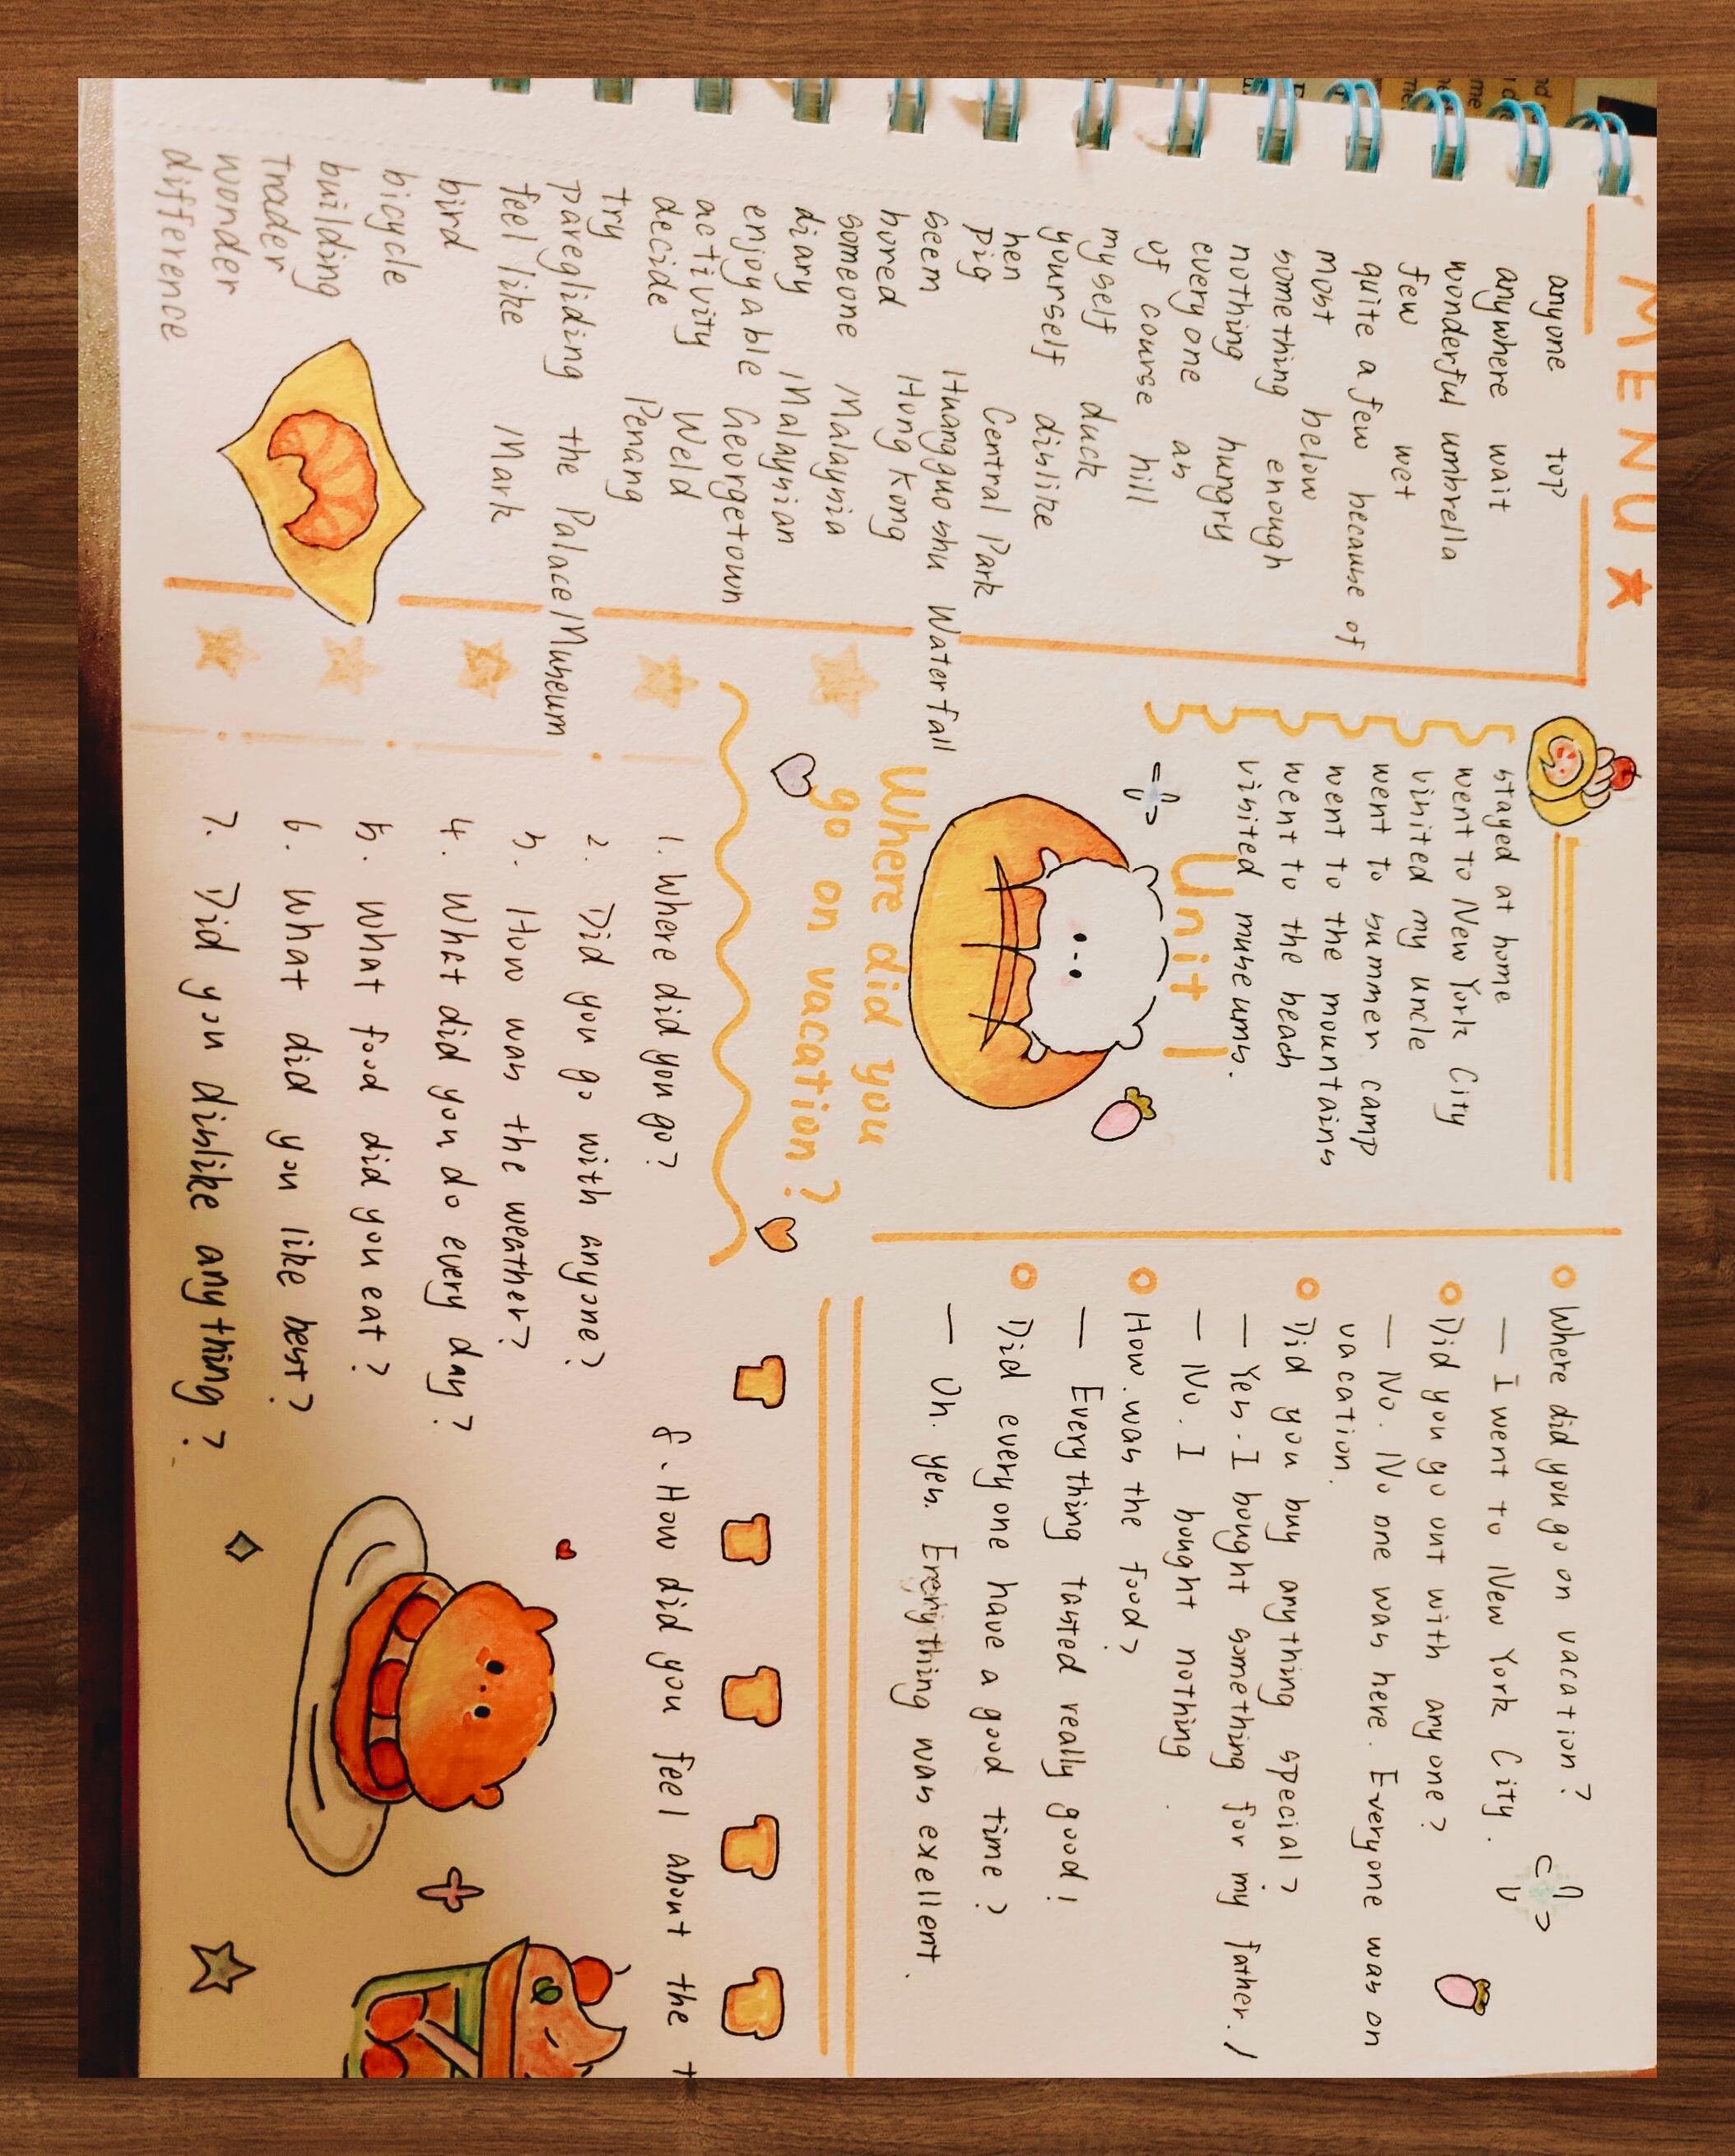 MENU
anyone
anywhere
wonderful
few
quite a few
most
something
nothing
everyone
of course
myself
yourself
hen
pig
seem
bored
someone
diary
enjoyable
activity
decide
try
paregliding
feel like
bird
bicycle
building
trader
wonder
difference
top
wait
umbrella
wet
because of
below
enough
hungry
as
hill
duck
dislike
Central Park
Huangguoshu Waterfall
Hong Kong
Malaysia
Malaysian
Georgetown
Weld
Penang
the Palace Museum
Mark
stayed at home
went to New York City
visited my uncle
went to summer camp
went to the mountains
went to the beach
visited museums.
Unit 1
Where did you
go on vacation?
Where did you go on vacation?
— I went to New York City.
Did you go out with anyone?
— No. No one was here. Everyone was on
vacation.
Did you buy anything special?
— Yes. I bought something for my father. /
— No. I bought nothing
How was the food?
— Everything tasted really good!
Did everyone have a good time?
— Oh. yes. Everything was exellent.
1. Where did you go?
2. Did you go with anyone?
3. How was the weather?
4. What did you do every day?
5. What food did you eat?
6. What did you like best?
7. Did you dislike anything?
8. How did you feel about the